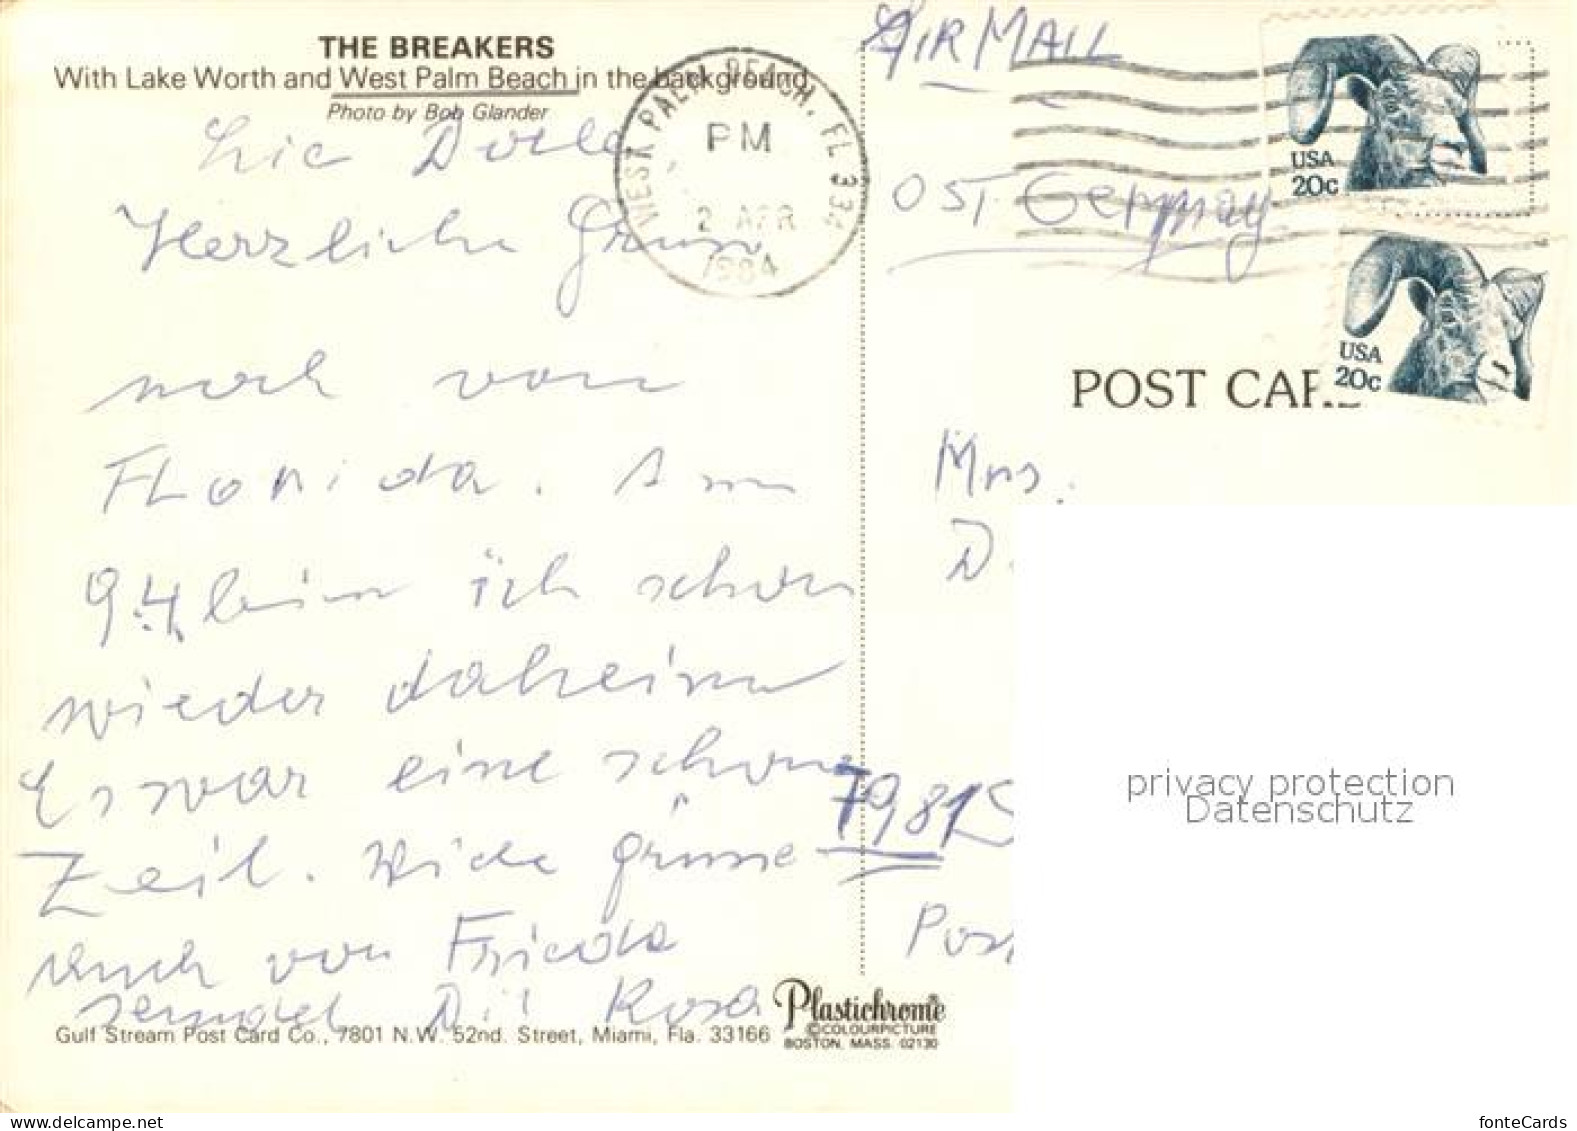 THE BREAKERS
With Lake Worth and West Palm Beach in the background
Photo by Bob Glander
WEST PALM BEACH, FL 334
PM
2 APR
1984
AIR MAIL
USA
20c
USA
20c
OST Germany
POST CAR
Herzliche Grüsse
noch von
Florida. Am
9.4. bin ich schon
wieder daheim
Es war eine schöne
Zeit. Viele Grüsse
auch von Frieda
sendet Dir Rosa
Mrs.
D.
7981
Pos
privacy protection
Datenschutz
Gulf Stream Post Card Co., 7801 N.W. 52nd. Street, Miami, Fla. 33166
Plastichrome®
©COLOURPICTURE
BOSTON, MASS. 02130
fonteCards